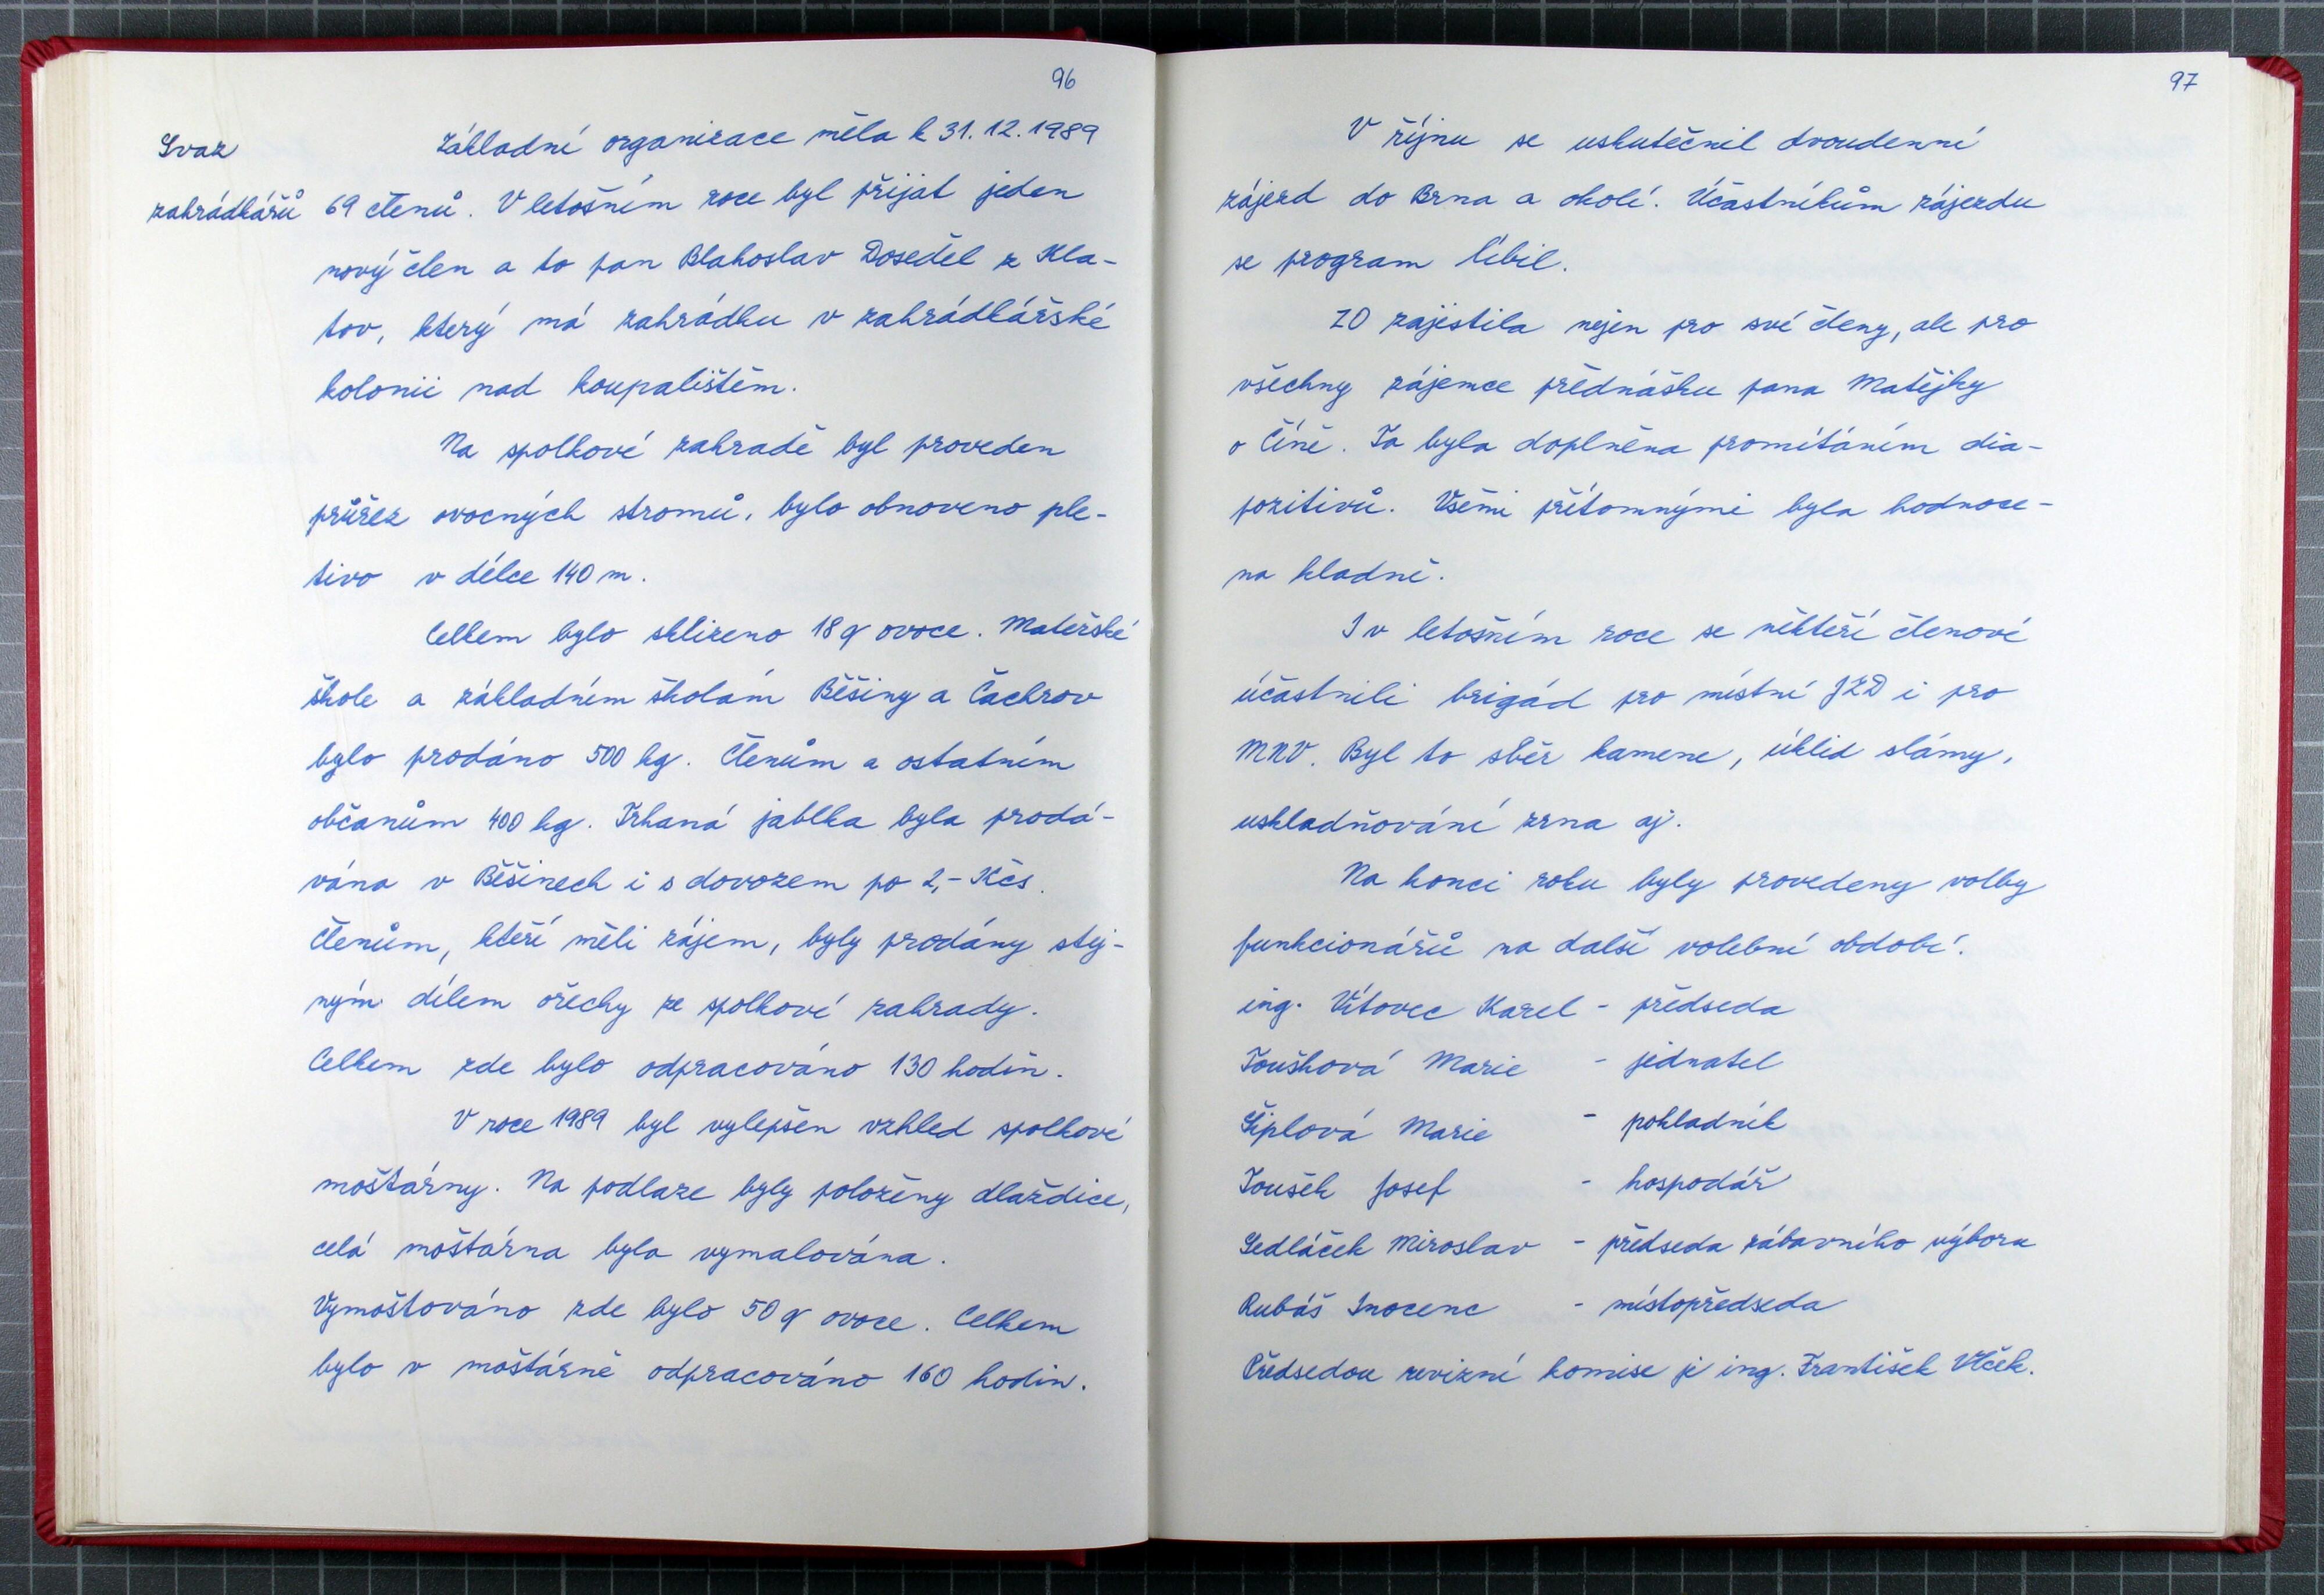 96
Svaz
zahrádkářů
Základní organizace měla k 31.12.1989
69 členů. V letošním roce byl přijat jeden
nový člen a to pan Blahoslav Doseděl z Kla-
tov, který má zahrádku v zahrádkářské
kolonii nad koupalištěm.
Na spolkové zahradě byl proveden
průřez ovocných stromů, bylo obnoveno ple-
tivo v délce 140 m.
Celkem bylo sklizeno 18 q ovoce. Mateřské
škole a základním školám Běšiny a Čachrov
bylo prodáno 500 kg. Členům a ostatním
občanům 400 kg. Trhaná jablka byla prodá-
vána v Běšinech i s dovozem po 2,- Kčs.
Členům, kteří měli zájem, byly prodány stej-
ným dílem ořechy ze spolkové zahrady.
Celkem zde bylo odpracováno 130 hodin.
V roce 1989 byl vylepšen vzhled spolkové
moštárny. Na podlaze byly položeny dlaždice,
celá moštárna byla vymalována.
Vymoštováno zde bylo 50 q ovoce. Celkem
bylo v moštárně odpracováno 160 hodin.
97
V říjnu se uskutečnil dvoudenní
zájezd do Brna a okolí. Účastníkům zájezdu
se program líbil.
ZO zajistila nejen pro své členy, ale pro
všechny zájemce přednášku pana Matějky
o Číně. Ta byla doplněna promítáním dia-
pozitivů. Všemi přítomnými byla hodnoce-
na kladně.
I v letošním roce se někteří členové
účastnili brigád pro místní JZD i pro
MNV. Byl to sběr kamene, úklid slámy,
uskladňování zrna aj.
Na konci roku byly provedeny volby
funkcionářů na další volební období.
ing. Vítovec Karel - předseda
Toušková Marie - jednatel
Šiplová Marie - pokladník
Toušek Josef - hospodář
Sedláček Miroslav - předseda zábavního výboru
Rubáš Inocenc - místopředseda
Předsedou revizní komise je ing. František Vlček.